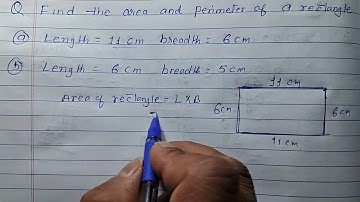 Q Find the area and perimeter of a rectangle
(a) Length = 11 cm breadth = 6 cm
(b) Length = 6 cm breadth = 5 cm
11 cm
Area of rectangle = L X B
6 cm
6 cm
=
11 cm